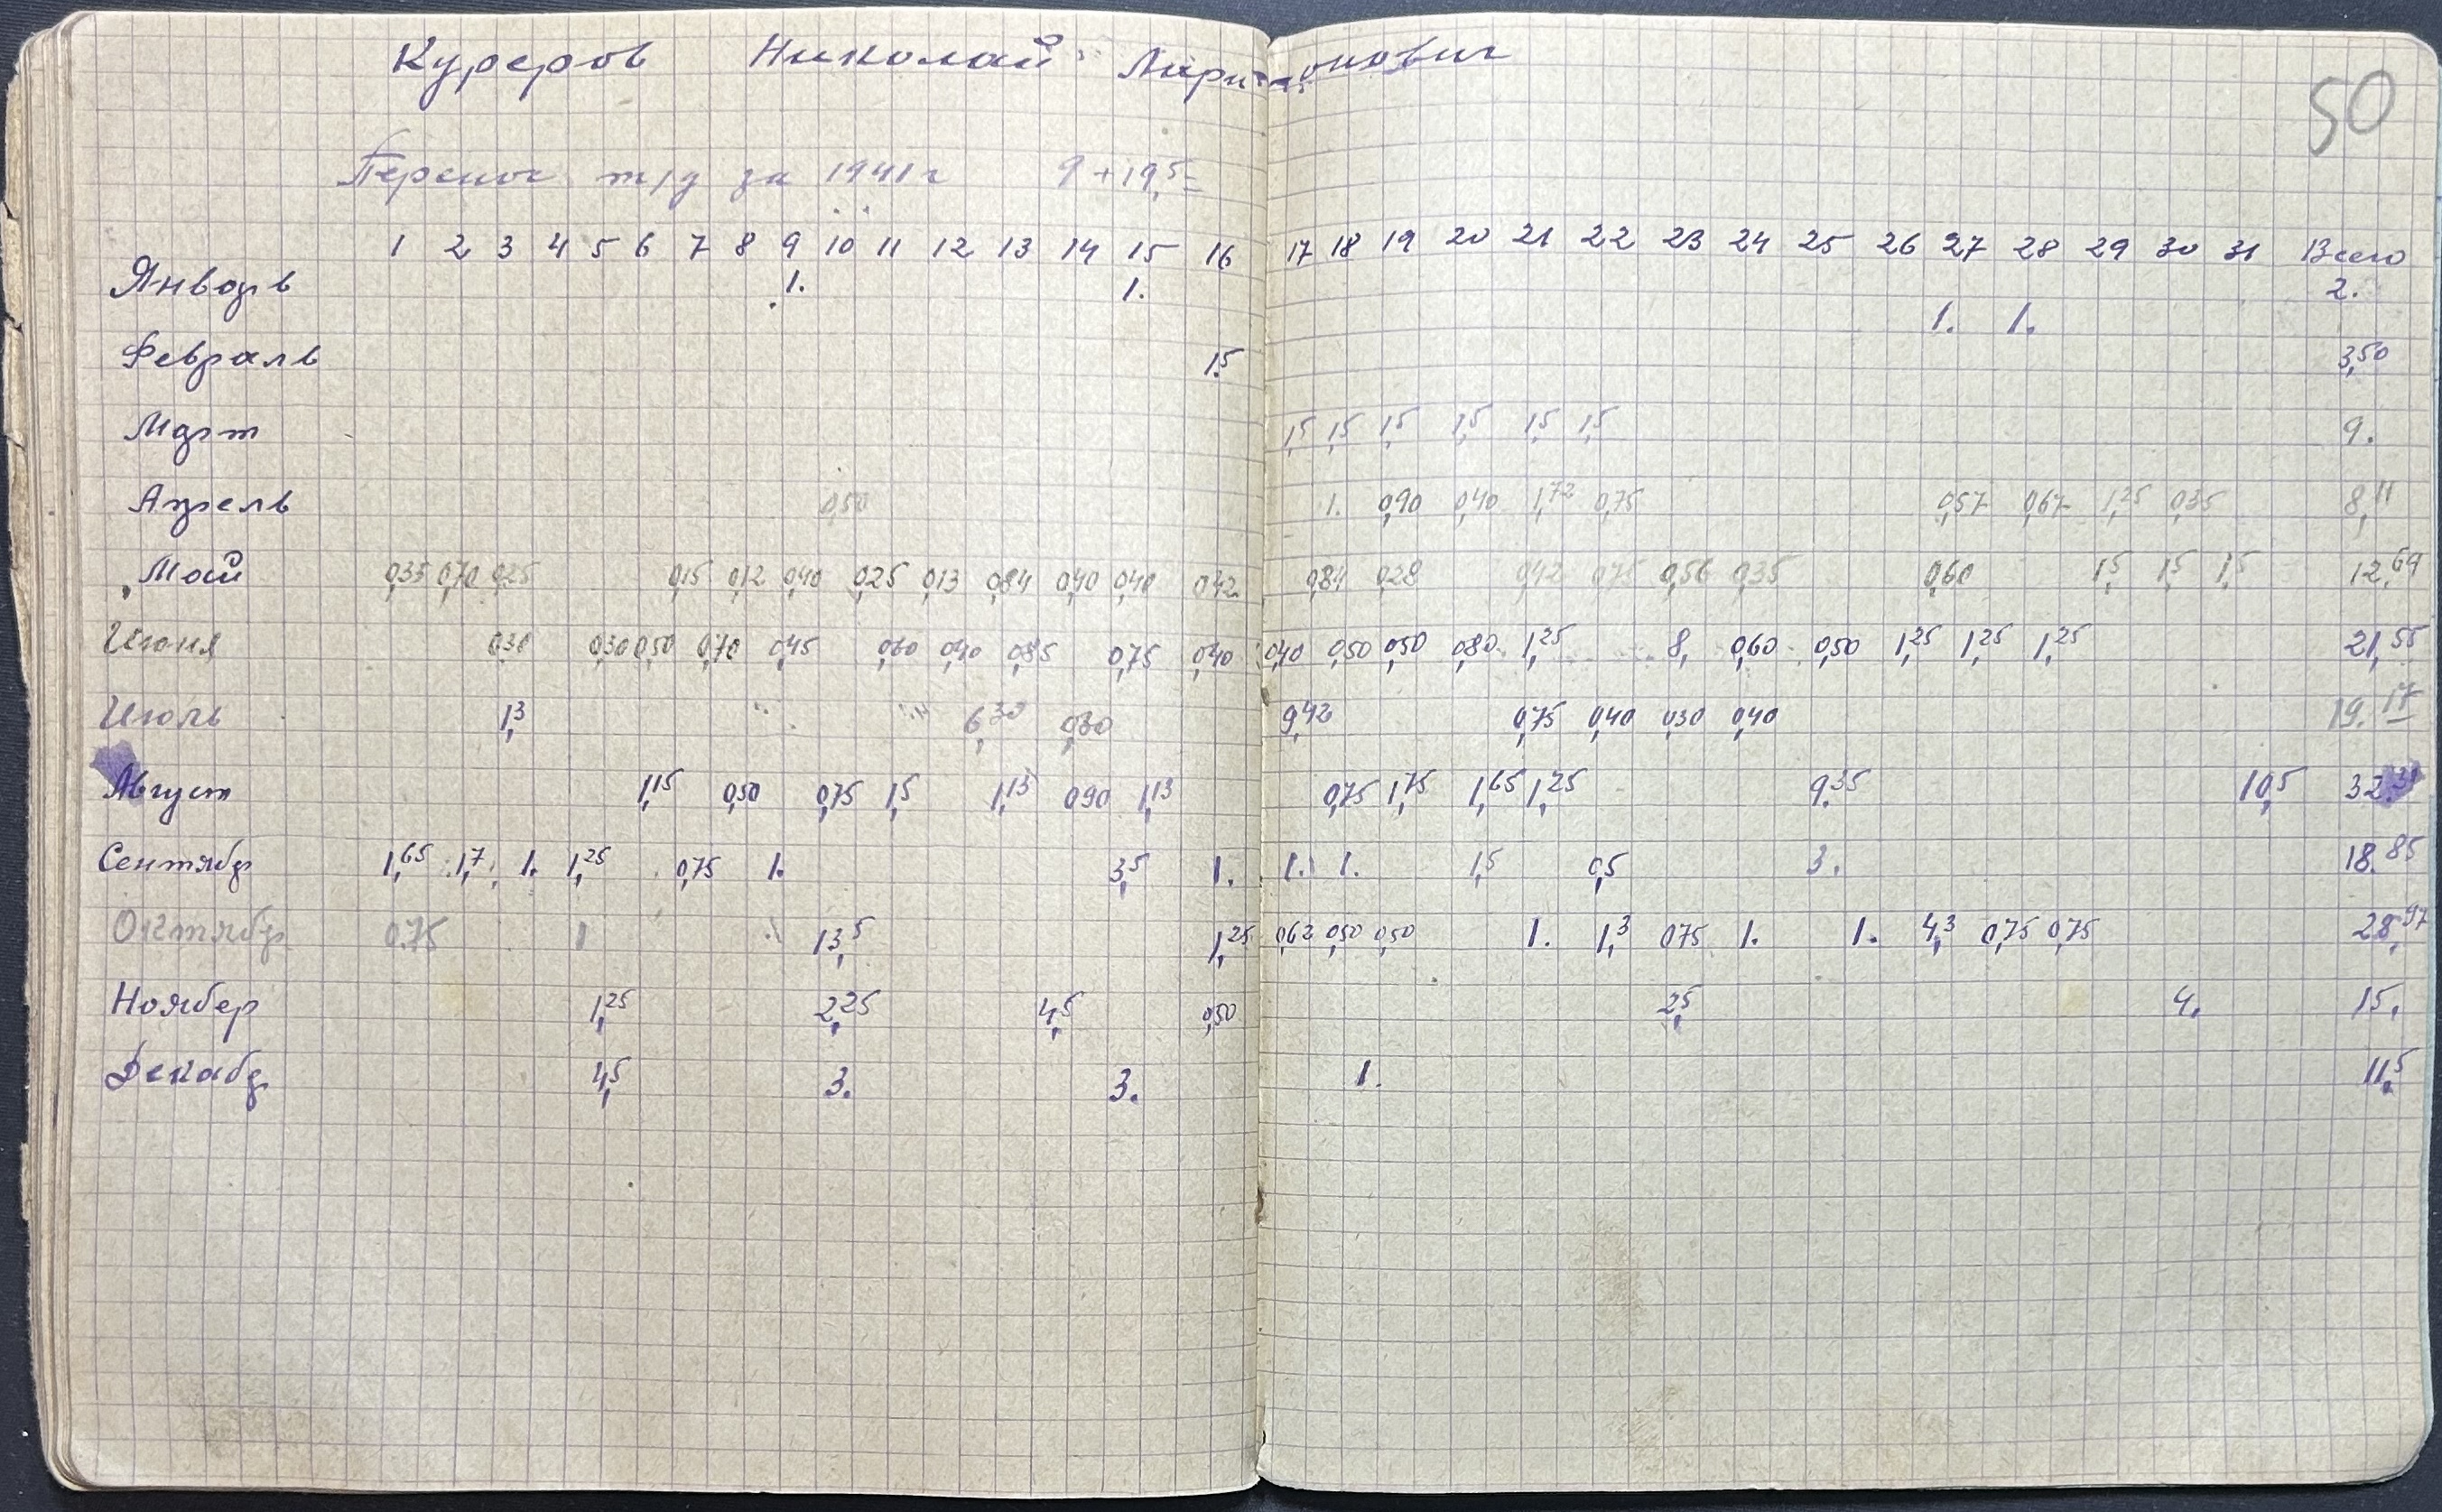 Куреров Николай Ларионович
50
Перенос т/д за 1941 г 9 + 19,5=
1 2 3 4 5 6 7 8 9 10 11 12 13 14 15 16 17 18 19 20 21 22 23 24 25 26 27 28 29 30 31 Всего
Январь 1. 1. 2.
1. 1.
Февраль 1.5 3,50
Март 1,5 1,5 1,5 1,5 1,5 1,5 9.
Апрель 0,50 1. 0,90 0,40 1,72 0,75 0,57 0,67 1,25 0,35 8,11
Май 0,35 0,70 0,25 0,15 0,12 0,40 0,25 0,13 0,84 0,40 0,40 0,42 0,84 0,28 0,42 0,75 0,56 0,35 0,60 1,5 1,5 1,5 12,69
Июня 0,30 0,30 0,50 0,70 0,45 0,60 0,40 0,85 0,75 0,40 0,40 0,50 0,50 0,80 1,25 8, 0,60 0,50 1,25 1,25 1,25 21,55
Июль 1,3 6,30 0,80 9,42 0,75 0,40 0,30 0,40 19.17
Август 1,15 0,50 0,75 1,5 1,13 0,90 1,13 0,75 1,75 1,65 1,25 9.35 10,5 32.
Сентябр 1,65 1,7 1. 1,25 0,75 1. 3,5 1. 1. 1. 1,5 0,5 3. 18.85
Октябр 0.75 1 13,5 1,25 0,62 0,50 0,50 1. 1,3 0,75 1. 1. 4,3 0,75 0,75 28,97
Ноябер 1,25 2,25 4,5 0,50 2,5 4. 15,
Декабр 4,5 3. 3. 1. 11,5